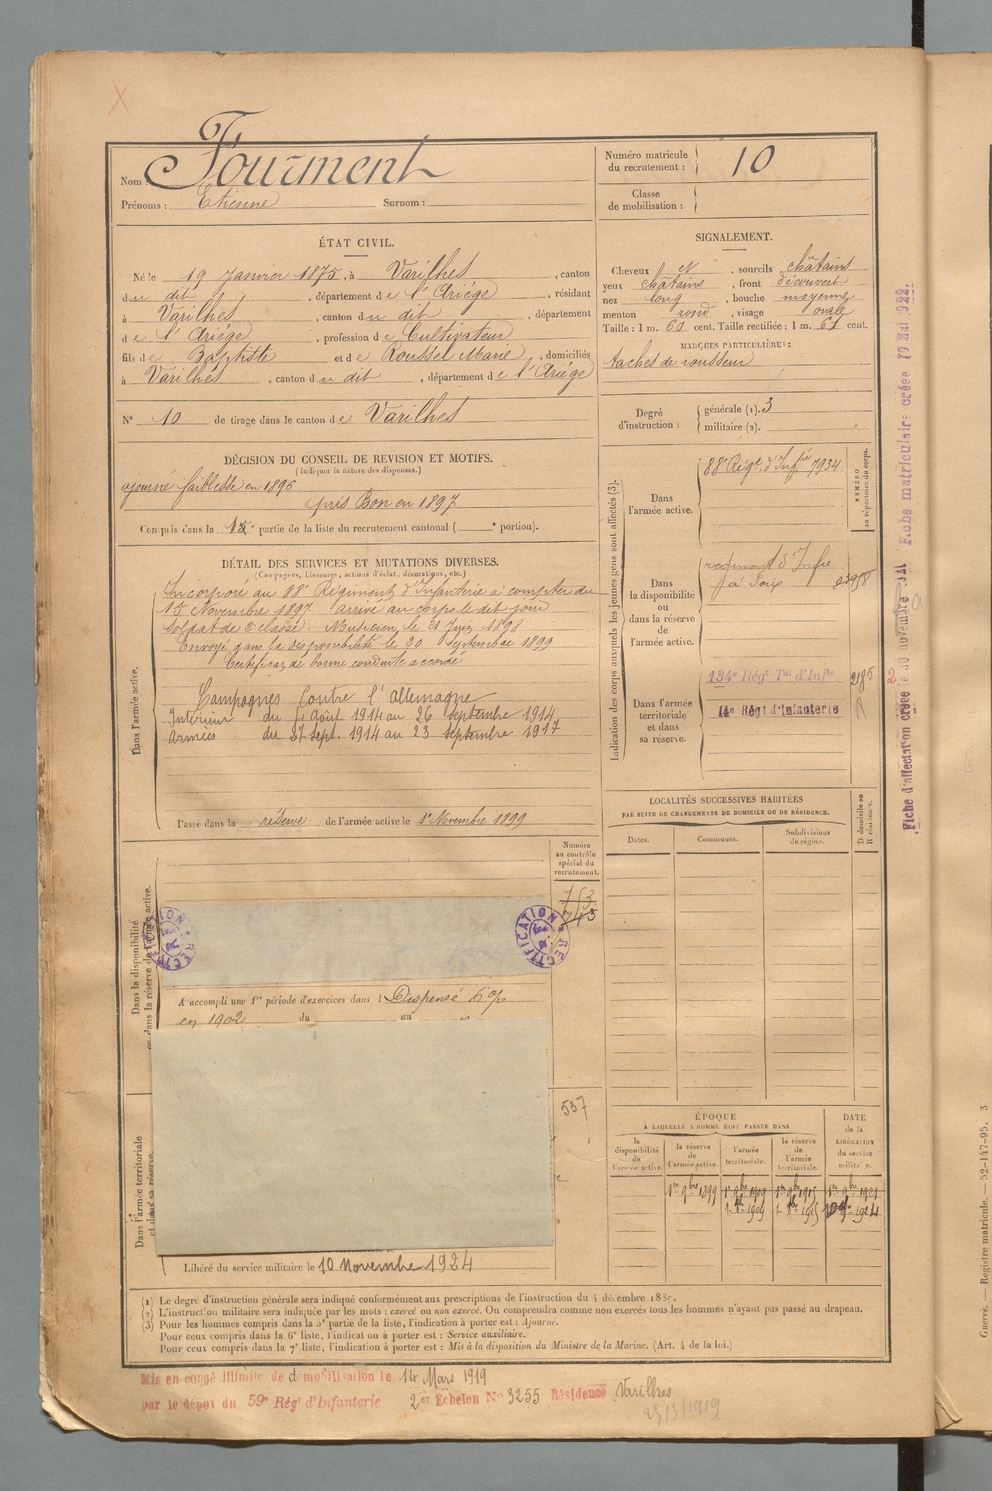 Nom Fourment
Prénoms : Etienne Surnom :
Numéro matricule du recrutement : 10
Classe de mobilisation :
ÉTAT CIVIL.
Né le 19 Janvier 1875, à Varilhes, canton
du dit, département de l'Ariège, résidant
à Varilhes, canton du dit, département
de l'Ariège, profession de Cultivateur
fils de Baptiste et de Roussel Marie, domiciliés
à Varilhes, canton du dit, département de l'Ariège
N° 10 de tirage dans le canton de Varilhes
SIGNALEMENT.
Cheveux et, sourcils châtains
yeux châtains, front découvert
nez long, bouche moyenne
menton rond, visage ovale
Taille : 1 m. 61 cent. Taille rectifiée : 1 m. 61 cent.
MARQUES PARTICULIÈRES :
taches de rousseur
Degré d'instruction : générale (1). 3
militaire (2).
DÉCISION DU CONSEIL DE REVISION ET MOTIFS.
(Indiquer la nature des dispenses.)
ajourné faiblesse en 1896
pris Bon en 1897
Compris dans la partie de la liste du recrutement cantonal ( portion).
DÉTAIL DES SERVICES ET MUTATIONS DIVERSES.
(Campagnes, blessures, actions d'éclat, décorations, etc.)
Dans l'armée active.
Incorporé au 88e Régiment d'Infanterie à compter du
15 Novembre 1897. arrivé au corps le dit jour
Soldat de 2e classe. Musicien le 31 Juin 1898
Envoyé dans la disponibilité le 20 Septembre 1899
Certificat de bonne conduite accordé
Campagnes Contre l'Allemagne
Intérieur du 4 Août 1914 au 26 septembre 1914
Armées du 27 sept. 1914 au 23 septembre 1917
Passé dans la réserve de l'armée active le 1er Novembre 1899
Indication des corps auxquels les jeunes gens sont affectés (3).
NUMÉRO au répertoire du corps.
Dans l'armée active.
88e Régt d'Infie 7934
Dans la disponibilité ou dans la réserve de l'armée active.
régiment d'Infie
à Foix
Dans l'armée territoriale et dans sa réserve.
134e Régt Tal d'Infie 2185
14e Régt d'Infanterie
LOCALITÉS SUCCESSIVES HABITÉES
PAR SUITE DE CHANGEMENTS DE DOMICILE OU DE RÉSIDENCE.
D domicile ou R résidence.
Dates. Communes. Subdivisions de région.
Dans la disponibilité ou dans la réserve de l'armée active.
Numéro au contrôle spécial du recrutement.
753
743
RECTIFICATION
RECTIFICATION
A accompli une 1re période d'exercices dans l Dispensé 6%
en 1902 du au
537
Dans l'armée territoriale et dans sa réserve.
Libéré du service militaire le 10 Novembre 1924
ÉPOQUE
À LAQUELLE L'HOMME DOIT PASSER DANS
DATE de la LIBÉRATION du service militaire.
la disponibilité de l'armée active.
la réserve de l'armée active.
l'armée territoriale.
la réserve de l'armée territoriale.
1er 9bre 1899 1er 9bre 1909 1er 9bre 1915 1er 9bre 1921
1909 1915 10 1924
(1) Le degré d'instruction générale sera indiqué conformément aux prescriptions de l'instruction du 4 décembre 1889.
(2) L'instruction militaire sera indiquée par les mots : exercé ou non exercé. On comprendra comme non exercés tous les hommes n'ayant pas passé au drapeau.
(3) Pour les hommes compris dans la 5e partie de la liste, l'indication à porter est : Ajourné.
Pour ceux compris dans la 6e liste, l'indication à porter est : Service auxiliaire.
Pour ceux compris dans la 7e liste, l'indication à porter est : Mis à la disposition du Ministre de la Marine. (Art. 4 de la loi.)
Mis en congé illimité de démobilisation le 14 Mars 1919
par le dépôt du 59e Régt d'Infanterie 2er Echelon N° 3255 Résidence Varilhes
25/3/1919
Fiche d'affectation créée le 30 novembre Fiche matriculaire créée 10 Mai 1922.
Guerre. — Registre matricule. — 52-147-95. 3